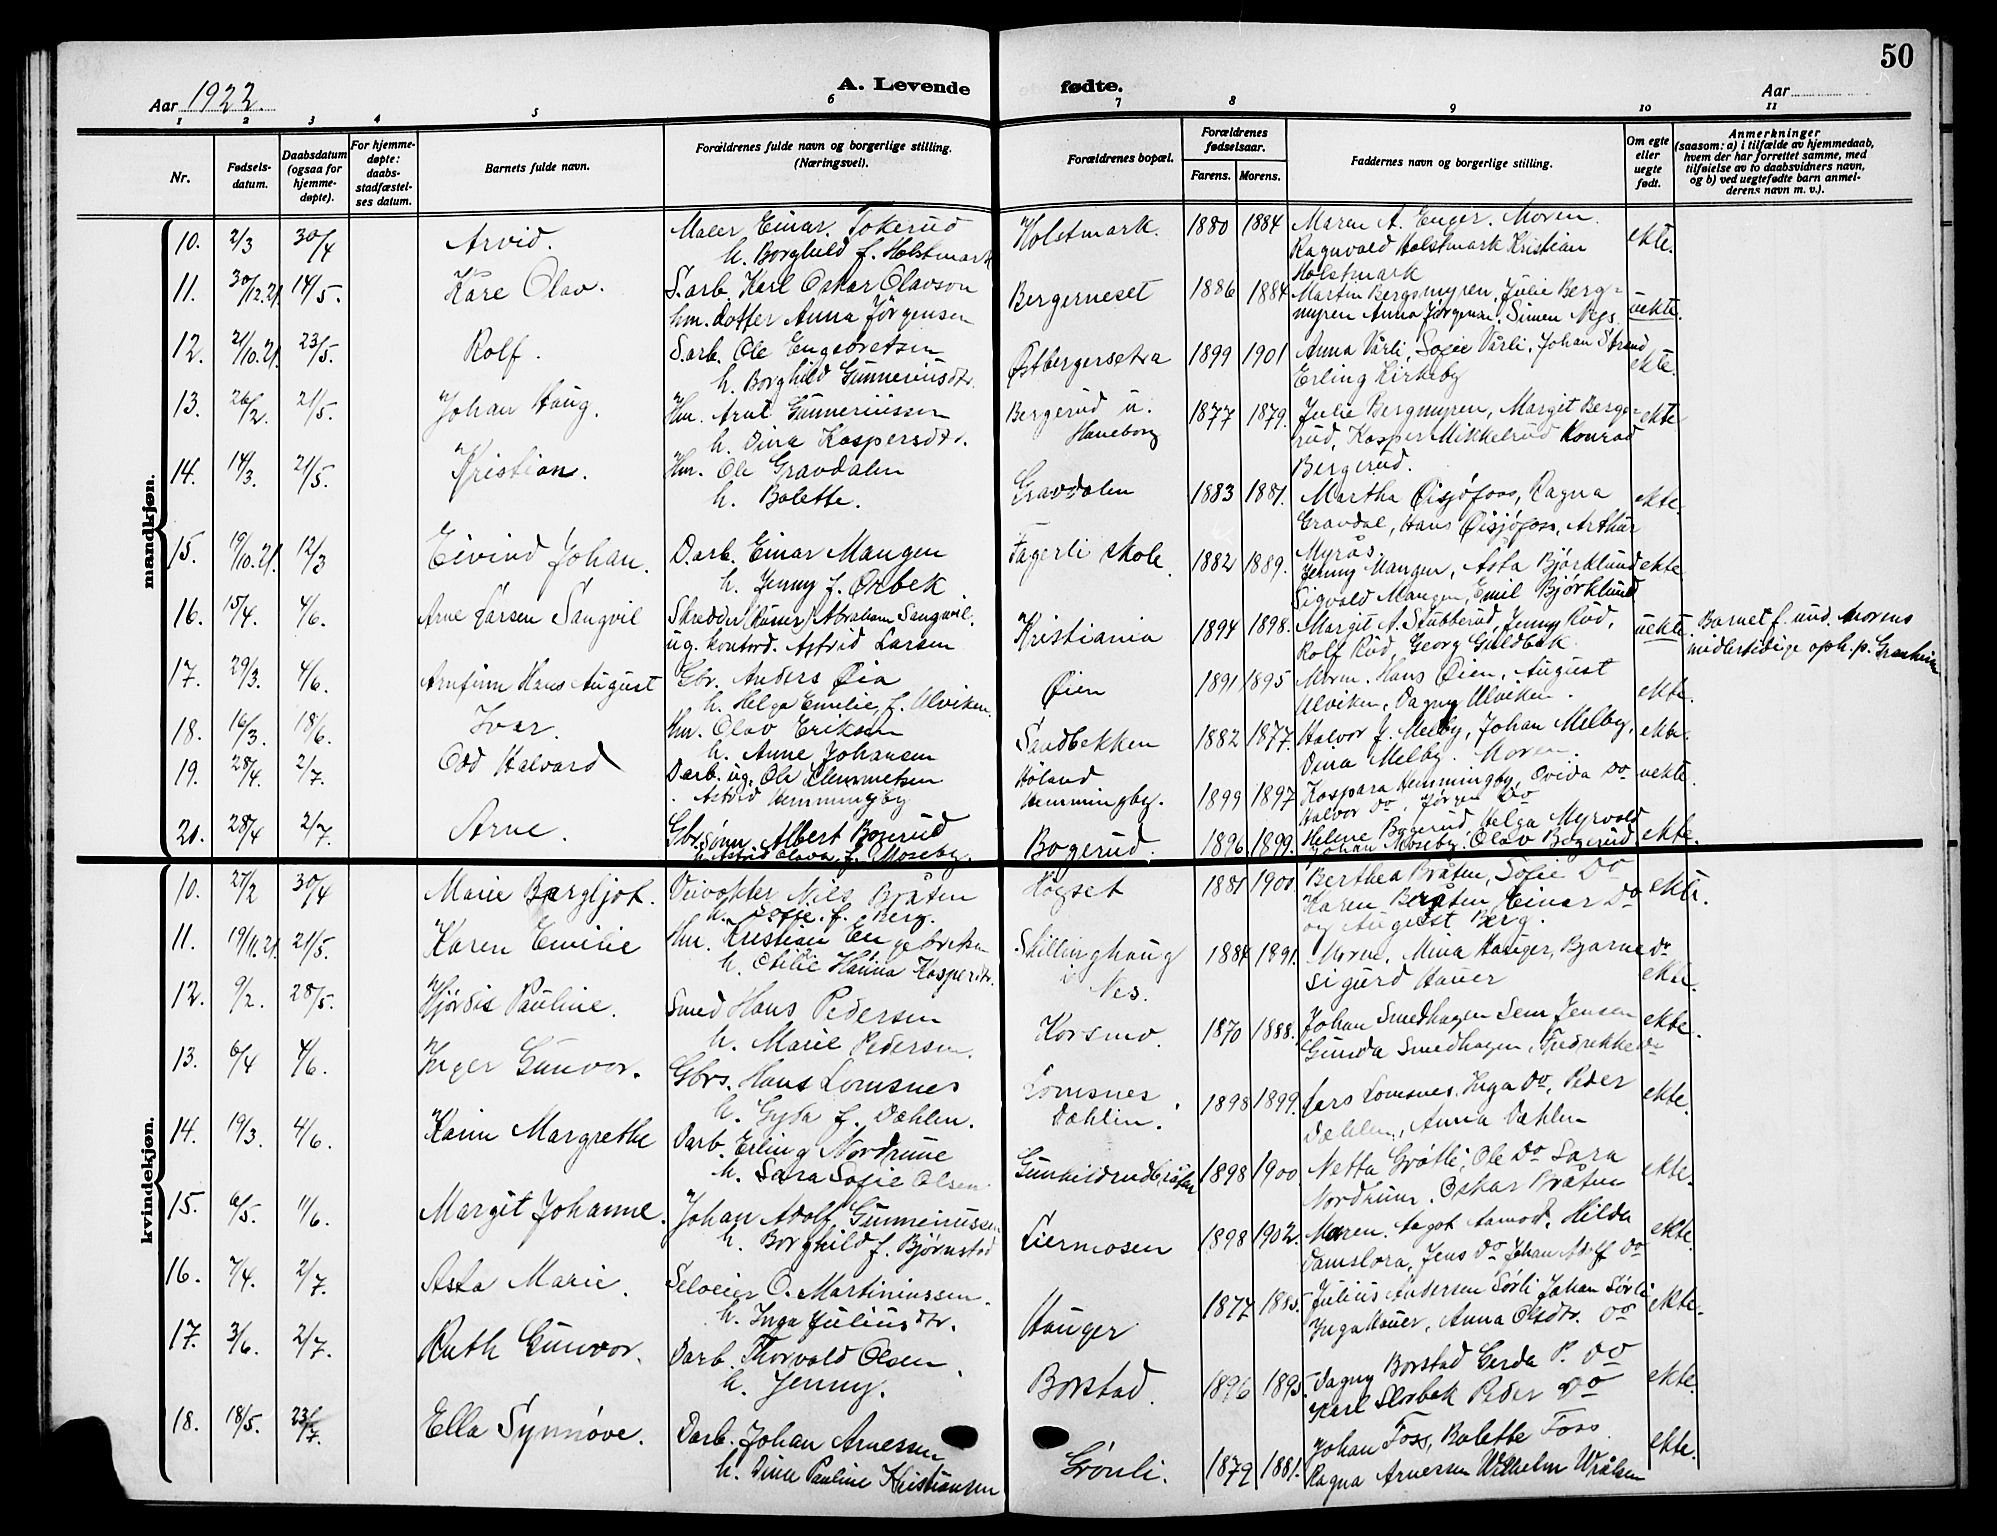 50
Aar 1922.
A. Levende fødte.
Aar
1 2 3 4 5 6 7 8 9 10 11
Nr.
Fødsels-
datum.
Daabsdatum
(ogsaa for
hjemme-
døpte).
For hjemme-
døpte:
daabs-
stadfæstel-
ses datum.
Barnets fulde navn.
Forældrenes fulde navn og borgerlige stilling.
(Næringsvei).
Forældrenes bopæl.
Forældrenes
fødselsaar.
Farens. Morens.
Faddernes navn og borgerlige stilling.
Om egte
eller
uegte
født.
Anmerkninger
(saasom: a) i tilfælde av hjemmedaab,
hvem der har forrettet samme, med
tilføielse av to daabsvidners navn,
og b) ved uegtefødte barn anmel-
derens navn m. v.).
mandkjøn.
10. 2/3 30/4 Arvid. Maler Einar Tokerud Holstmark. 1880 1884 Maren A. Enger. Moren. ekte.
h. Borghild f. Holstmark Ragnvald Holstmark Kristian
Holstmark
11. 30/12.21. 14/5. Kåre Olav. S.arb. Karl Oskar Olavson Bergerneset 1886 1884 Martin Bergsmyren, Julie Berg- uekte.
hm. datter Anna Jørgensen myren Anna Jørgensen, Simen Nygs.
12. 21/10.21. 23/5. Rolf. S.arb. Ole Engebretsen Østbergersetra 1899 1901 Anna Vårli, Sofie Vårli, Johan Strand ekte.
h. Borghild Gunneriusdtr. Erling Kirkeby
13. 26/2. 21/5. Johan Haug. Hm. Arnt Gunneriussen Bergerud u. 1877 1879. Julie Bergmyren, Margit Berge- ekte
h. Dina Kaspersdtr. Haneborg rud, Kasper Mikkelrud Konrad
Bergerud.
14. 14/3. 21/5. Kristian. Hm. Ole Gravdalen Gravdalen 1883 1881. Martha Øisjøfoss, Ragna ekte.
h. Bolette. Gravdal, Hans Øisjøfoss, Arthur
Myrås.
15. 19/10.21. 12/3 Eivind Johan. D.arb. Einar Mangen Fagerli skole. 1882 1889. Jenny Mangen, Asta Bjørklund ekte
h. Jenny f. Ørbek Sigvald Mangen, Emil Bjørklund
16. 15/4. 4/6. Arne Larsen Sangvil Skredder Abraham Sangvil. Kristiania 1894 1898. Margit A. Stubberud, Jenny Rud, uekte. Barnet f. und. Morens
ug. kontord. Astrid Larsen Rolf Rud, Georg Guldbek midlertidige oph. p. Granheim
17. 29/3. 4/6. Arnfinn Hans August Gbr. Anders Øia Øien 1891 1895 Moren. Hans Øien, August ekte.
h. Helga Emilie, f. Ulviken. Ulviken, Dagny Ulviken.
18. 16/3. 18/6. Ivar. Hm. Olav Eriksen Sandbekken 1882 1877. Halvor J. Melby, Johan Melby, ekte.
h. Anne Johansen Dina Melby. Moren.
19. 28/4. 2/7. Odd Halvard Darb. ug. Ole Clemmetsen Høland 1899 1897 Kaspara Hemmingby, Ovida Do uekte.
Astrid Hemmingby Hemmingby. Halvor Do, Jørgen Do
20. 28/4 2/7. Arne. Gbr.sønn. Albert Bogerud Bogerud. 1896 1899. Helene Bogerud Helga Myrvold ekte.
h. Astrid Olava f. Moseby. Johan Moseby. Olav Bogerud.
kvindekjøn.
10. 27/2 30/4 Marie Bergljot. Veivokter Nils Bråten Høgset 1881 1900 Berthea Bråten, Sofie Do ekte.
h. Sofie. f. Berg. Karen Bråten, Einar Do
og August Berg.
11. 19/11.21. 21/5. Karen Emilie Hm. Kristian Engebretsen Skillinghaug 1884 1891. Moren, Mina Hauger, Bjarne Do ekte.
h. Otilie Hanna Kasperdtr. i Nes. Sigurd Hauer
12. 9/2. 28/5. Hjørdis Pauline. Smed Hans Pedersen Korsmo. 1870 1888. Johan Smedhagen Sem Jensen ekte.
h. Marie Pedersen. Gunda Smedhagen, Fredrekke Do
13. 6/4 4/6. Inger Gunvor. Gbrs. Hans Lomsnes Lomsnes 1898 1899. Lars Lomsnes, Inga Do, Peder ekte.
h. Gyda f. Dæhlen. Dæhlin. Dæhlen, Anna Dæhlen
14. 19/3. 4/6. Karin Margrethe Darb. Erling Nordhuue Gunhildrudbråten 1898 1900 Netta Grøtli, Ole Do Sara ekte.
h. Sara Sofie Olsen. Nordhuue. Oskar Bråten
15. 6/5. 11/6. Margit Johanne. Johan Adolf Gunneriussen Liermosen 1898 1902. Maren. Aagot Aamodt. Hilda ekte.
h. Borghild f. Bjørnstad Damslora, Jens Do Johan Adolf Do
16. 7/4. 2/7. Asta Marie. Seloeier O. Martiniussen. Hauger 1877 1885. Julius Andersen Sørli Johan Sørli ekte.
h. Inga Juliusdtr. Inga Hauer, Anna Olsdtr. Do
17. 3/6. 2/7. Ruth Gunvor. Darb. Thorvald Olsen. Borstad. 1896 1895. Dagny Borstad Gerda P. Do ekte.
h. Jenny. Karl Slorbek Peder Do
18. 18/5. 23/7. Ella Synnøve. Darb. Johan Arnessen Grønli. 1879 1881. Johan Foss, Bolette Foss. ekte.
h. Dina Pauline Kristiansen Ragna Arnessen Wilhelm Wrålsen